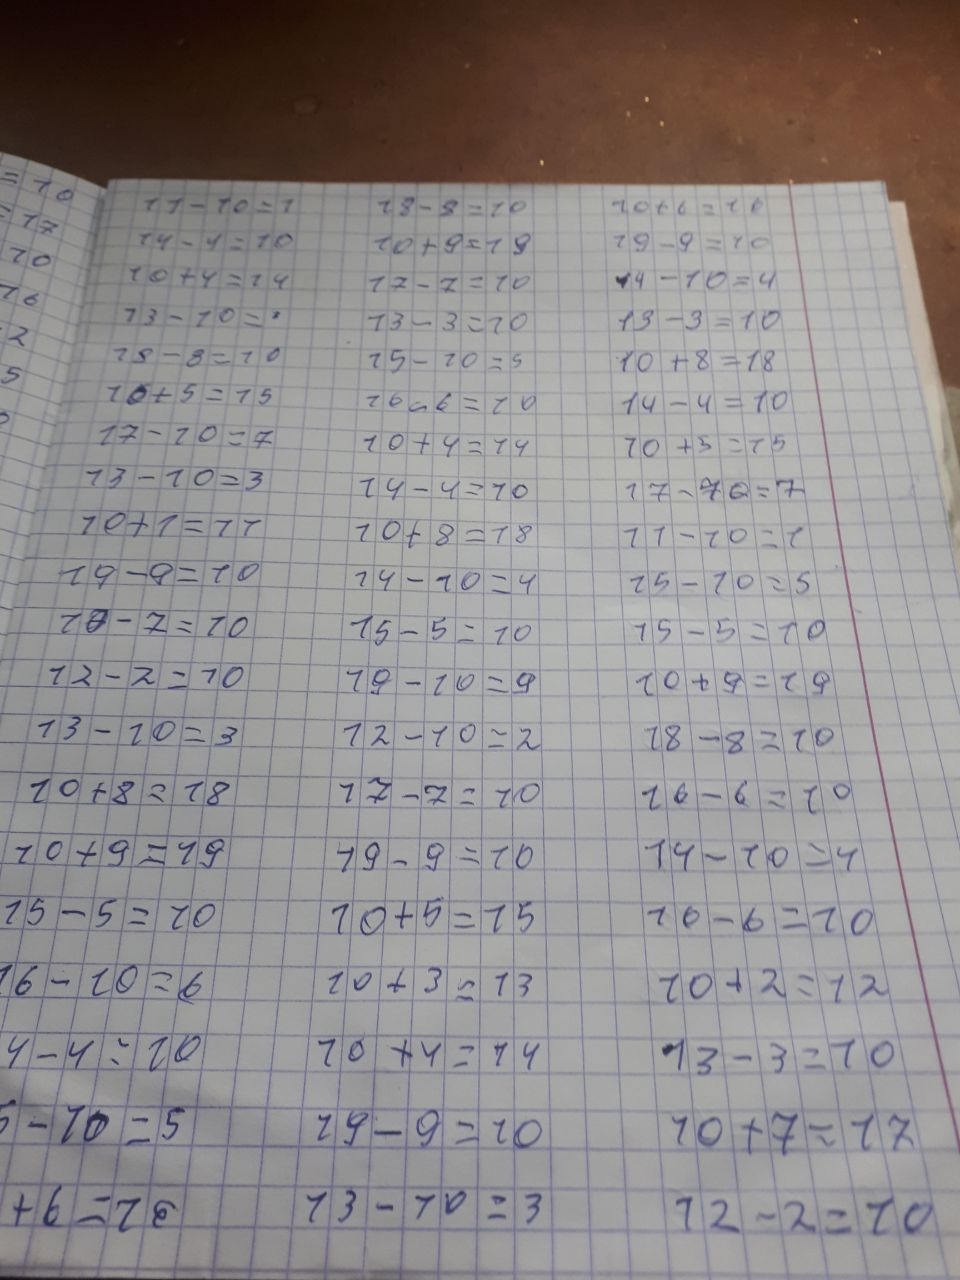 = 10
= 17
10
16
2
5
11-10=1
14-4=10
10+4=14
13-10=
18-8=10
10+5=15
17-10=7
13-10=3
10+1=11
19-9=10
-7=10
12-2=10
13-10=3
10+8=18
10+9=19
15-5=10
16-10=6
4-4=10
5-10=5
+9=
18-8=10
10+9=19
17-7=10
13-3=10
15-10=5
16-6=10
10+4=14
14-4=10
10+8=18
14-10=4
15-5=10
19-10=9
12-10=2
17-7=10
19-9=10
10+5=15
10+3=13
10+4=14
19-9=10
13-10=3
10+6=
19-9=10
14-10=4
13-3=10
10+8=18
14-4=10
10+5=15
17-10=7
11-10=1
15-10=5
15-5=10
10+9=19
18-8=10
16-6=10
14-10=4
16-6=10
10+2=12
13-3=10
10+7=17
12-2=10